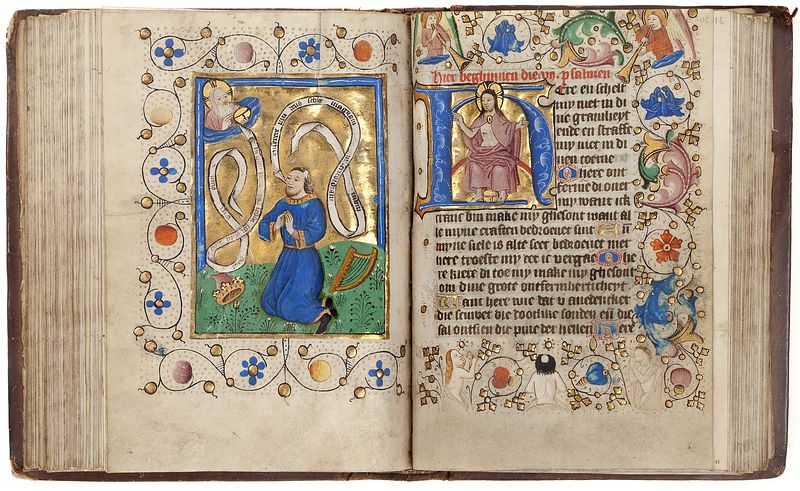 Hier beghinnen die vij psalmen
HEre en schelt
my niet in di
nre gramheyt
ende en straffe
my niet in di
nen toerne
O here ont
ferme di over
my want ick
cranc bin make my ghesont want al
le myne craften bedroevet sint
myne siele is alte seer bedroevet mer
here troeste my eer ic vergae O he
re kiere di toe my make my ghesont
om dine grote ontfermherticheyt
Want here wie dat v anedencket
die scuwet die dootlike sonden eñ die
sal ontsien die pine der hellen Here